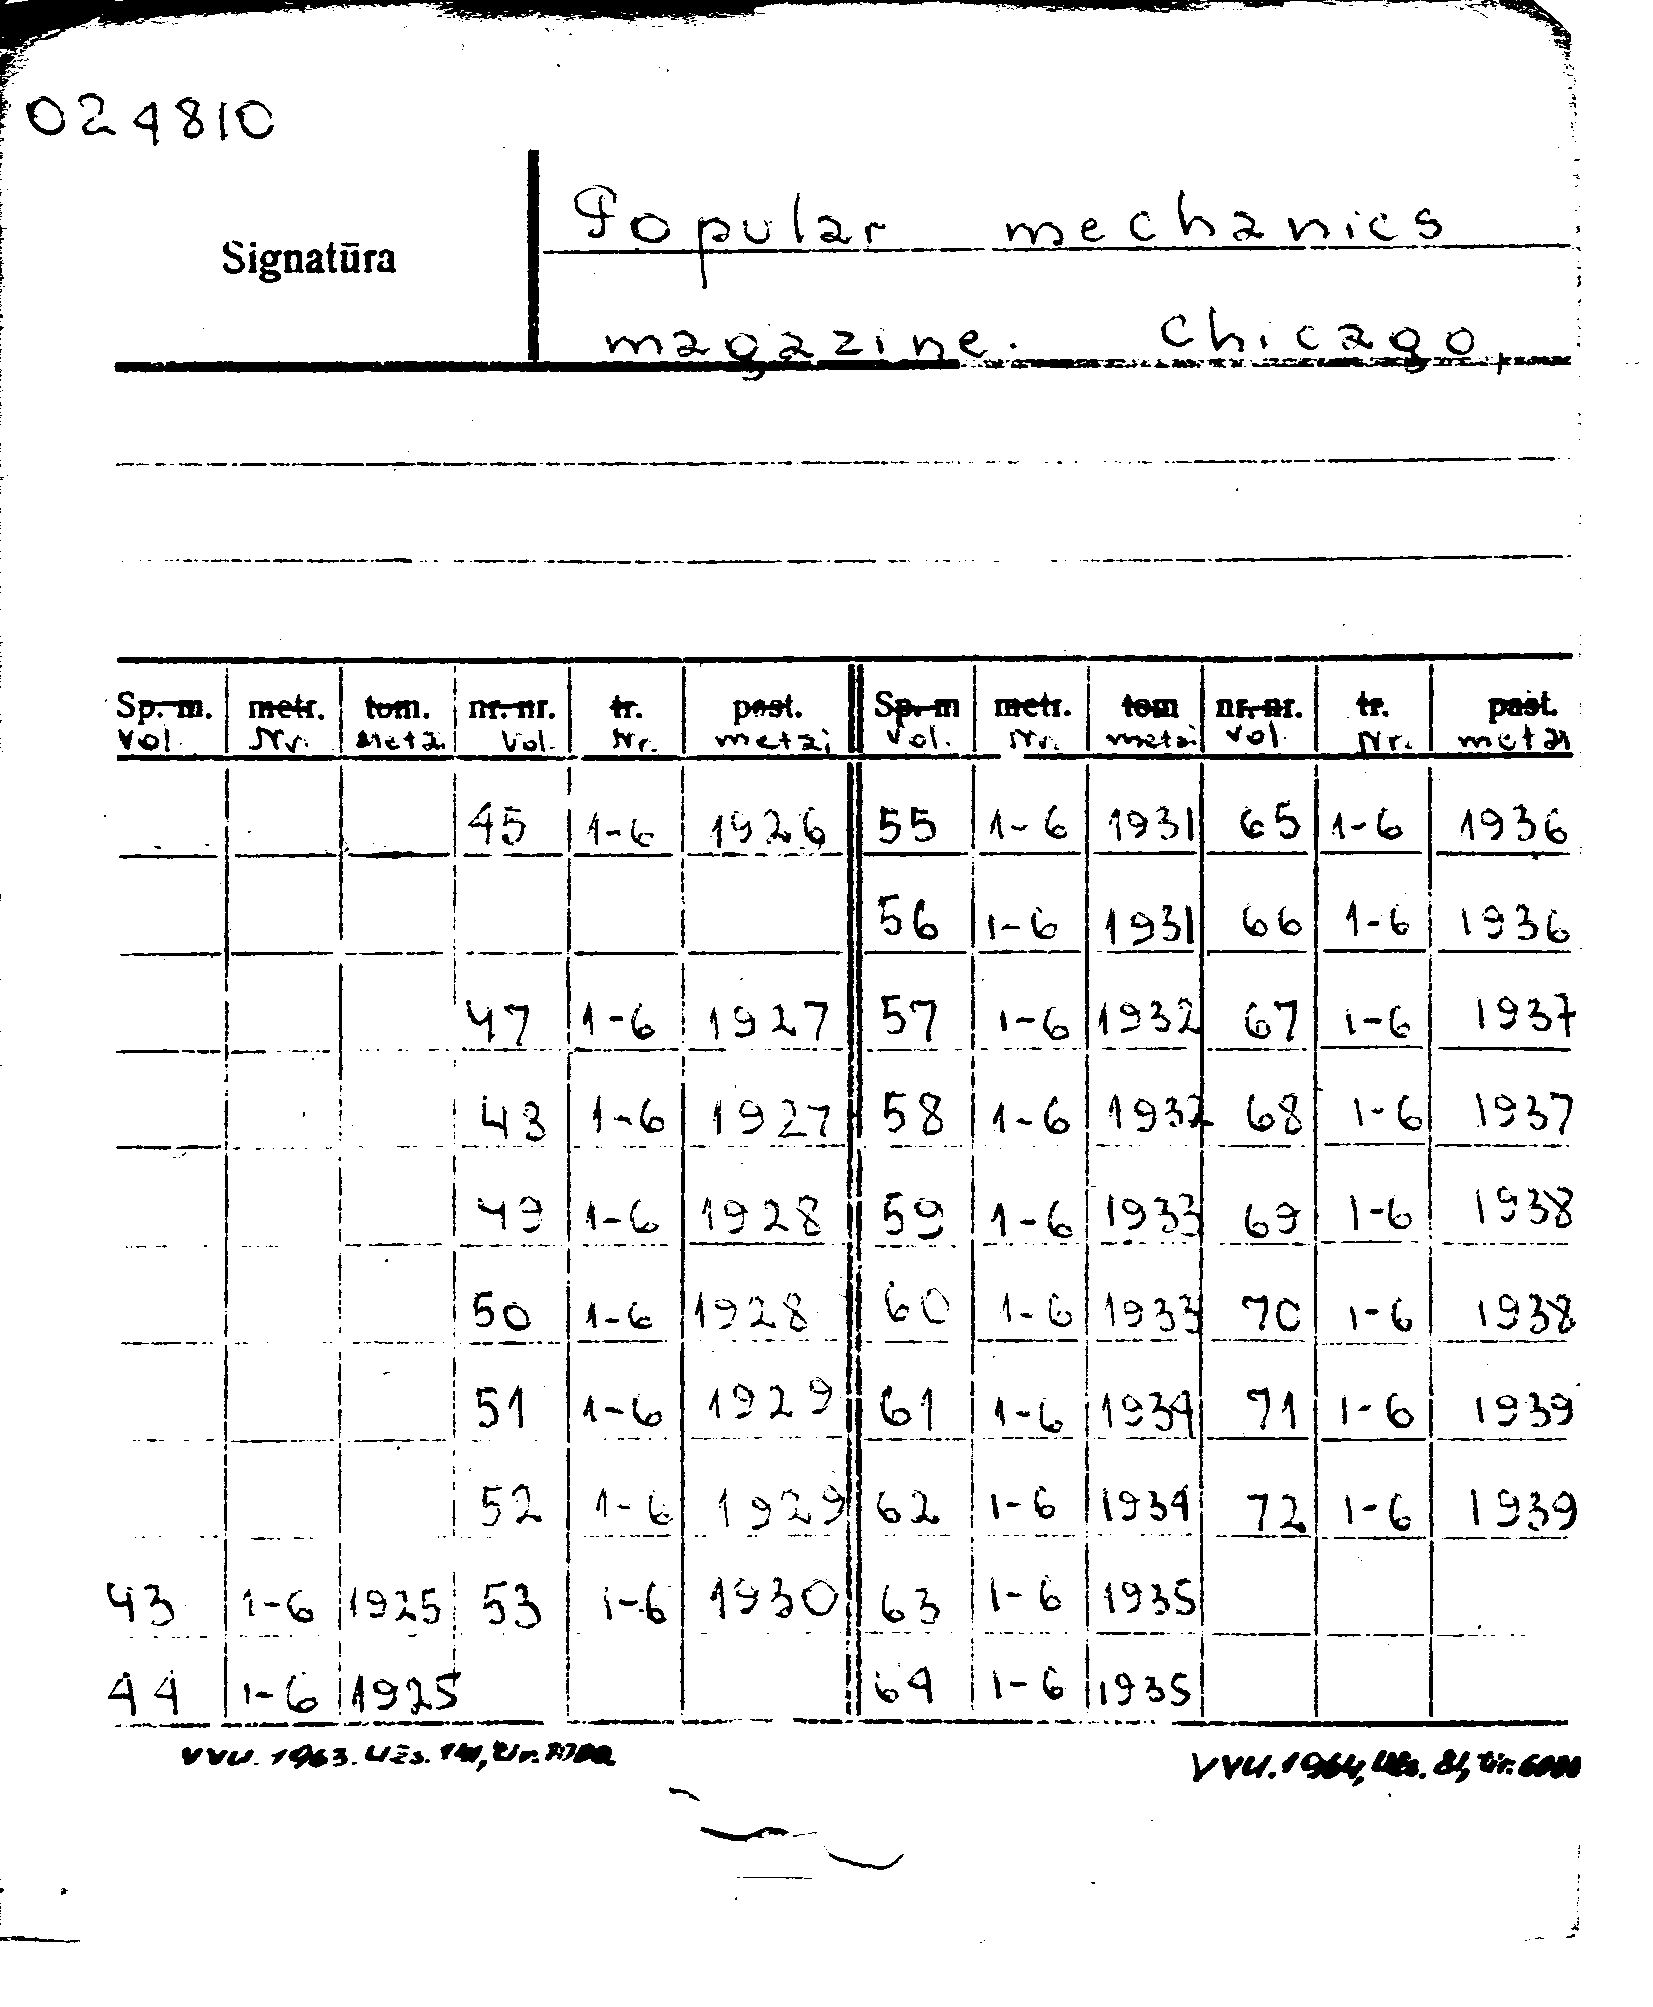 024810
Popular mechanics
Signatūra
magazine. Chicago,
Sp. m. metr. tom. nr. nr. tr. past. Sp. m metr. tom nr. nr. tr. past.
Vol. Nr. Metai Vol. Nr. metai Vol. Nr. metai Vol. Nr. metai
45 1-6 1926 55 1-6 1931 65 1-6 1936
56 1-6 1931 66 1-6 1936
47 1-6 1927 57 1-6 1932 67 1-6 1937
48 1-6 1927 58 1-6 1932 68 1-6 1937
49 1-6 1928 59 1-6 1933 69 1-6 1938
50 1-6 1928 60 1-6 1933 70 1-6 1938
51 1-6 1929 61 1-6 1934 71 1-6 1939
52 1-6 1929 62 1-6 1934 72 1-6 1939
43 1-6 1925 53 1-6 1930 63 1-6 1935
44 1-6 1925 64 1-6 1935
VVU. 1963. Užs. tir.
VVU. 1964, Užs. 81, tir. 6000